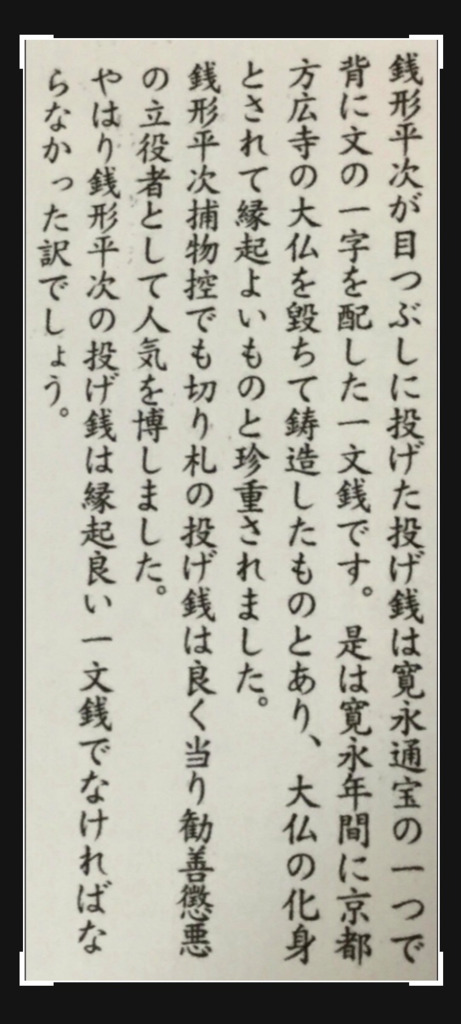 銭形平次が目つぶしに投げた投げ銭は寛永通宝の一つで
背に文の一字を配した一文銭です。是は寛永年間に京都
方広寺の大仏を毀ちて鋳造したものとあり、大仏の化身
とされて縁起よいものと珍重されました。
銭形平次捕物控でも切り札の投げ銭は良く当り勧善懲悪
の立役者として人気を博しました。
やはり銭形平次の投げ銭は縁起良い一文銭でなければな
らなかった訳でしょう。